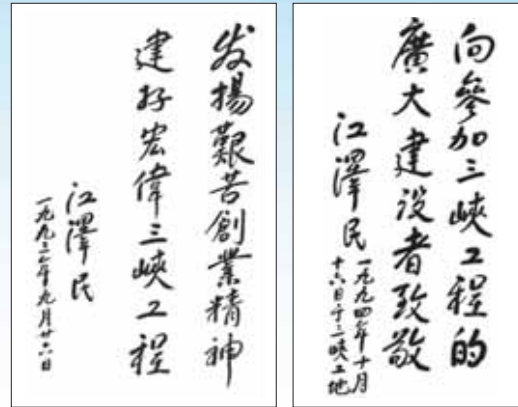 发揚艱苦創業精神
建好宏偉三峽工程
江澤民
一九九三年九月廿六日
向參加三峽工程的
廣大建设者致敬
江澤民
一九九四年十月
十六日于三峡工地